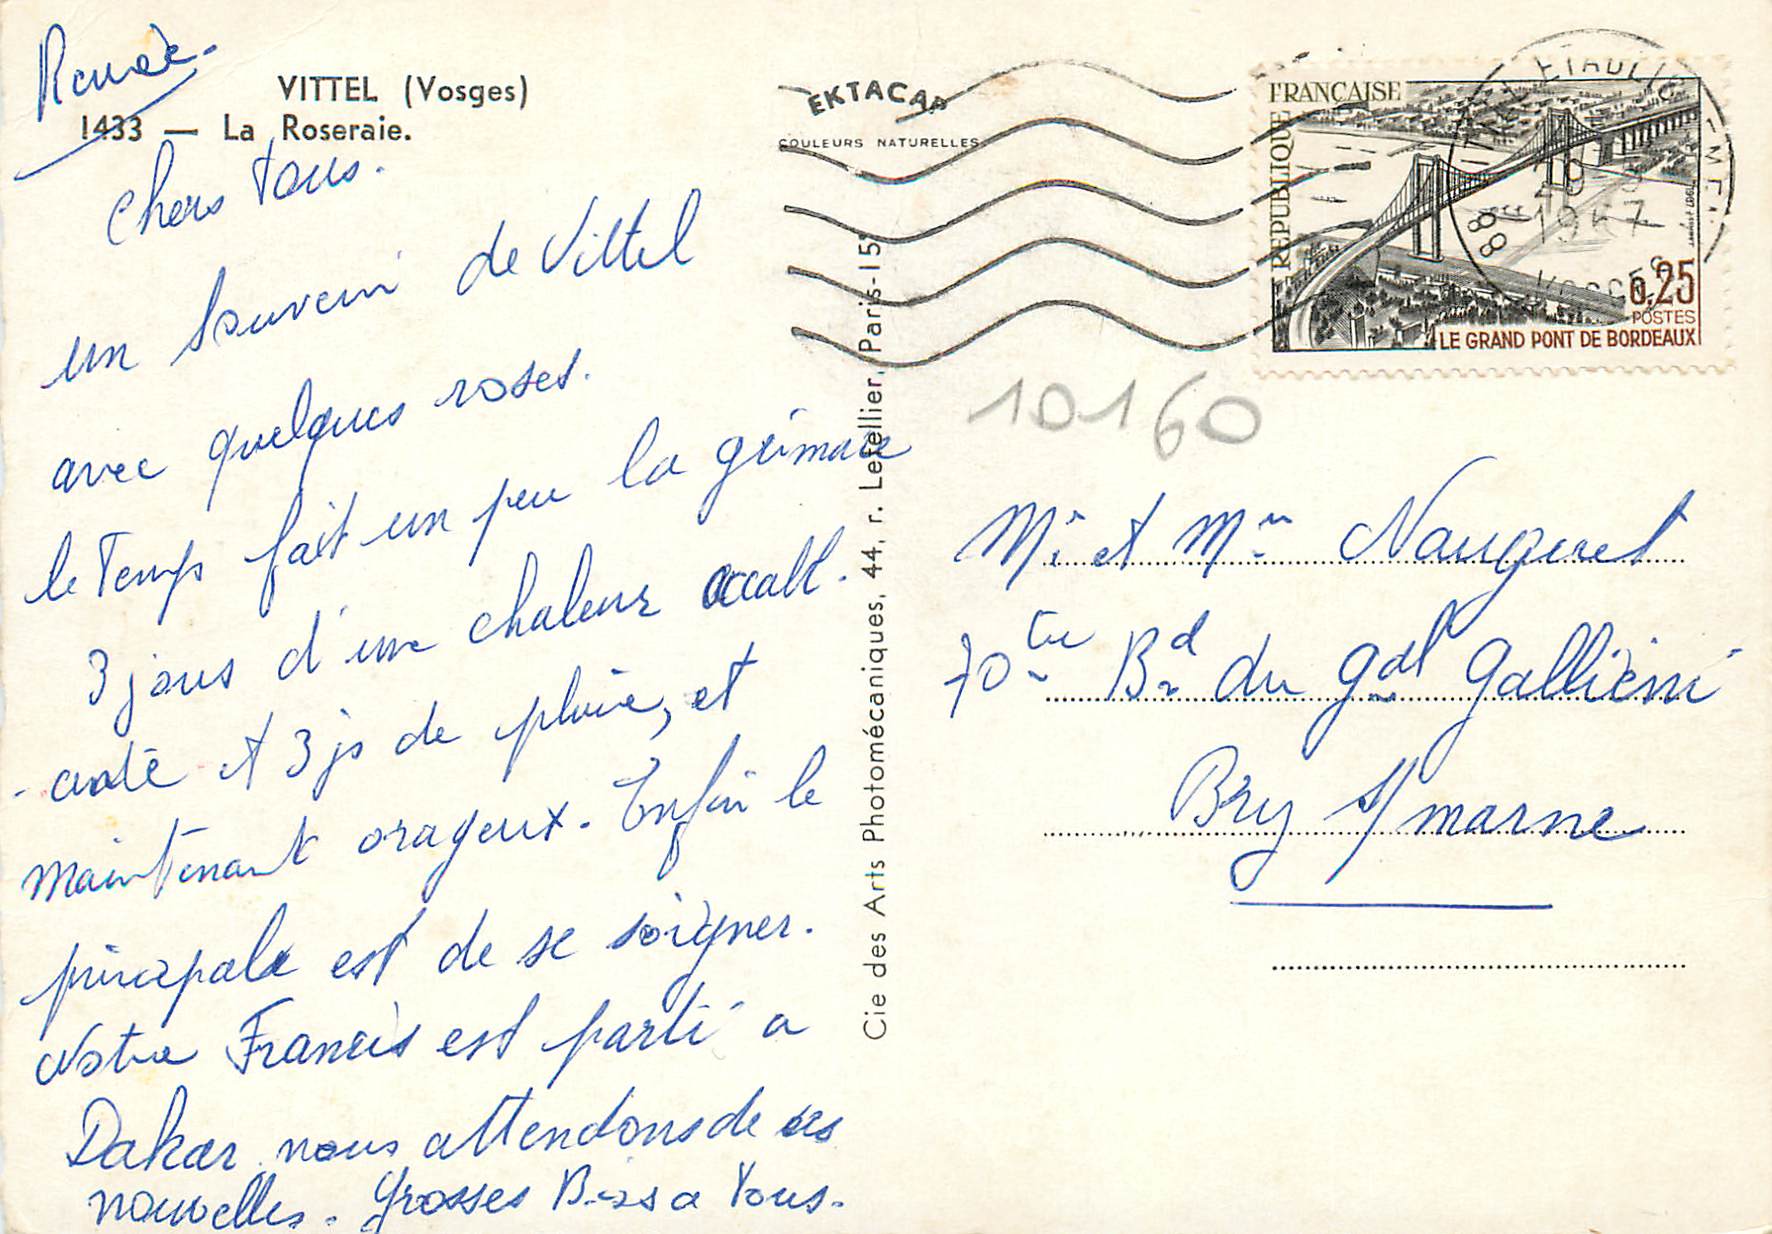 Renée.
VITTEL (Vosges)
1433 — La Roseraie.
Chers Tous.
un souvenir de Vittel
avec quelques roses.
le Temps fait un peu la grimace
3 jours d'une chaleur accabl-
-ante et 3 js de pluie, et
maintenant orageux. Enfin le
principale est de se soigner.
Notre Francis est parti a
Dakar nous attendons de ses
nouvelles. Grosses Bises a Tous.
EKTACAP
COULEURS NATURELLES
Cie des Arts Photomécaniques, 44, r. Letellier, Paris-15e
REPUBLIQUE FRANÇAISE
0,25
POSTES
LE GRAND PONT DE BORDEAUX
1967
88 VOSGES
10160
Mr et Mme Naugeret
70 ter Bd du Gal Galliéni
Bry s/ marne